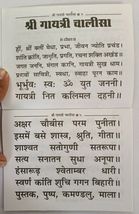 श्री गायत्री चालीसा
ह्रीं, श्रीं क्लीं मेधा, प्रभा, जीवन ज्योति प्रचण्ड।
शांति क्रांति, जागृति, प्रगति, रचना शक्ति अखंड॥
जगत जननि, मंगल करनि, गायत्री सुख धाम।
प्रणवों सावित्री, स्वधा, स्वाहा पूरन काम॥
भूर्भुवः स्वः ॐ युत जननी।
गायत्री नित कलिमल दहनी॥
अक्षर चौबीस परम पुनीता।
इसमें बसे शास्त्र, श्रुति, गीता॥
शाश्वत सतोगुणी सतरूपा।
सत्य सनातन सुधा अनूपा॥
हंसारूढ़ श्वेताम्बर धारी।
स्वर्ण कांति शुचि गगन बिहारी॥
पुस्तक, पुष्प, कमण्डलु, माला।